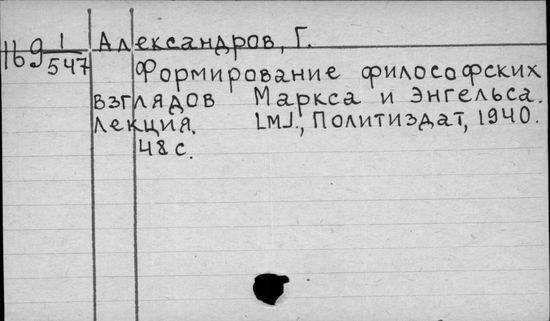 169 1/547 Александров, Г.
Формирование философских
взглядов Маркса и Энгельса.
Лекция. [М]., Политиздат, 1940.
48 с.